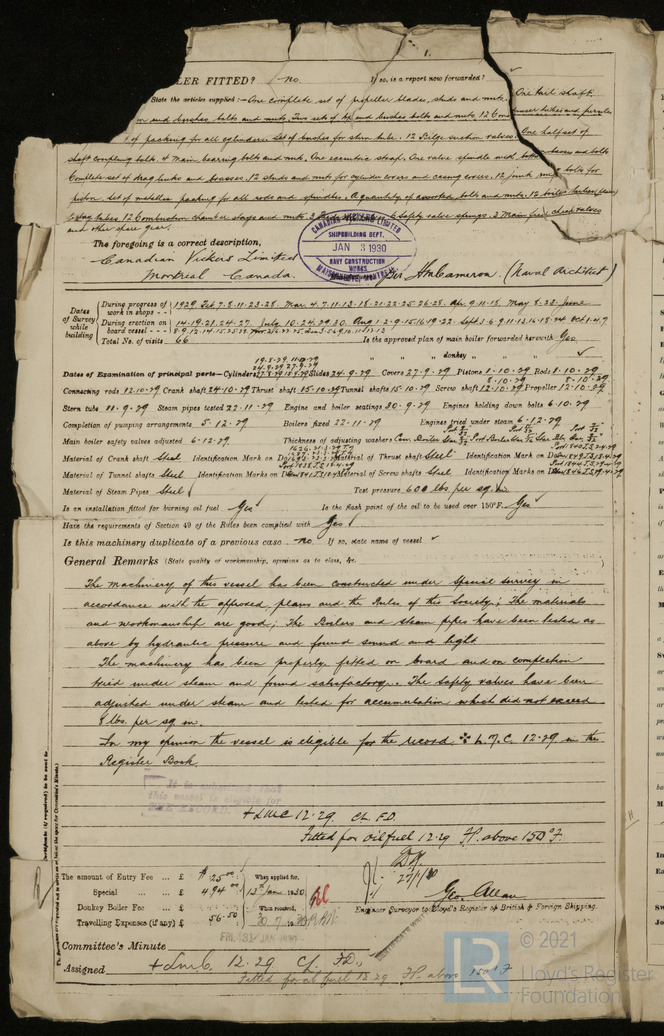 1.
LER FITTED? no. If so, is a report now forwarded?
State the articles supplied:— One complete set of propeller blades, studs and nuts. One tail shaft.
and bushes, bolts and nuts. Two sets of and bushes bolts and nuts 12 Condenser tubes and ferrules
of packing for all cylinders. Set of bushes for stern tube. 12 Bilge suction valves. One half set of
shaft coupling bolts. 4 Main bearing bolts and nuts. One eccentric strap. One valve spindle and bolts
Complete set of drag links and brasses. 12 studs and nuts for cylinder covers and casing covers. 12 junk ring bolts for
piston. Set of metallic packing for all rods and spindles. A quantity of assorted bolts and nuts. 12 boiler
stay tubes. 12 Combustion chamber stays and nuts. safety valve springs. 3 Main feed check valves
and other spare gear.
The foregoing is a correct description,
Canadian Vickers Limited
Montreal Canada. per (Naval Architect)
CANADIAN VICKERS LIMITED
SHIPBUILDING DEPT.
JAN 3 1930
NAVY CONSTRUCTION
WORKS
MAISONNEUVE, MONTREAL
Dates of Survey while building
During progress of work in shops - - 1929 Feb 7. 8. 11. 23. 28. Mar 4. 7. 11. 12. 18. 21. 22. 25. 26. 28. Apr 9. 11. 18. May 8. 22. June
During erection on board vessel - - - 14. 19. 21. 24. 27. July 10. 24. 29. 30. Aug 1. 2. 9. 15. 16. 19. 22. Sept 3. 6. 9. 11. 13. 16. 18. 24 Oct 1. 4. 7
Total No. of visits 66 Is the approved plan of main boiler forwarded herewith Yes
" " " donkey " " "
Dates of Examination of principal parts—Cylinders Slides 24.9.29 Covers 27.9.29 Pistons 1.10.29 Rods 1.10.29
8.10.29 8.10.29
Connecting rods 12.10.29 Crank shaft 24.10.29 Thrust shaft 15.10.29 Tunnel shafts 15.10.29 Screw shaft 12.10.29 Propeller 12.10.29
Stern tube 11.9.29 Steam pipes tested 22.11.29 Engine and boiler seatings 30.9.29 Engines holding down bolts 6.10.29
Completion of pumping arrangements 5.12.29 Boilers fixed 22.11.29 Engines tried under steam 6.12.29
Main boiler safety valves adjusted 6.12.29 Thickness of adjusting washers
Material of Crank shaft Steel Identification Mark on Do. Material of Thrust shaft Steel Identification Mark on Do.
Material of Tunnel shafts Steel Identification Marks on Do. Material of Screw shafts Steel Identification Marks on Do.
Material of Steam Pipes Steel Test pressure 600 lbs. per sq. in.
Is an installation fitted for burning oil fuel Yes Is the flash point of the oil to be used over 150°F. Yes
Have the requirements of Section 49 of the Rules been complied with Yes
Is this machinery duplicate of a previous case no If so, state name of vessel
General Remarks (State quality of workmanship, opinions as to class, &c.
The machinery of this vessel has been constructed under Special survey in
accordance with the approved plans and the Rules of this Society; The materials
and workmanship are good; The Boilers and steam pipes have been tested as
above by hydraulic pressure and found sound and tight
The machinery has been properly fitted on board and on completion
tried under steam and found satisfactory. The Safety valves have been
adjusted under steam and tested for accumulation which did not exceed
8 lbs. per sq. in.
In my opinion the vessel is eligible for the record ✠ L.M.C. 12.29 in the
Register Book.
It is submitted that
this vessel is eligible for
THE RECORD
+ LMC 12.29 CL. F.D.
Fitted for oil fuel 12.29 F.P. above 150°F
The amount of Entry Fee ... £ $ 25.00 When applied for,
Special ... ... £ 494.00 13th Jan 1930
Donkey Boiler Fee ... £ When received,
Travelling Expenses (if any) £ 56.50 30.7.1930
27/1/30
Geo. Allan
Engineer Surveyor to Lloyd's Register of British & Foreign Shipping.
FRI. 31 JAN 1930
Committee's Minute
Assigned + LMC. 12.29 CL. F.D.
Fitted for oil fuel 12.29 F.P. above 150°F
CERTIFICATE WRITTEN
LR
© 2021
Lloyd's Register
Foundation